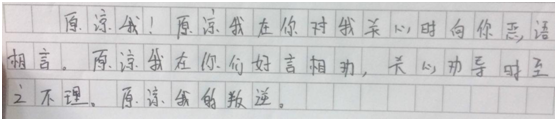 原谅我！原谅我在你对我关心时向你恶语
相言。原谅我在你们好言相劝，关心劝导时至
之不理。原谅我的叛逆。